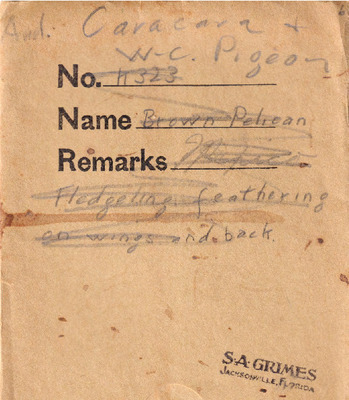 And. Caracara &
W-C. Pigeon
No. H323
Name Brown Pelican
Remarks
Fledgeling, feathering
on wings and back.
S.A. GRIMES
JACKSONVILLE, FLORIDA